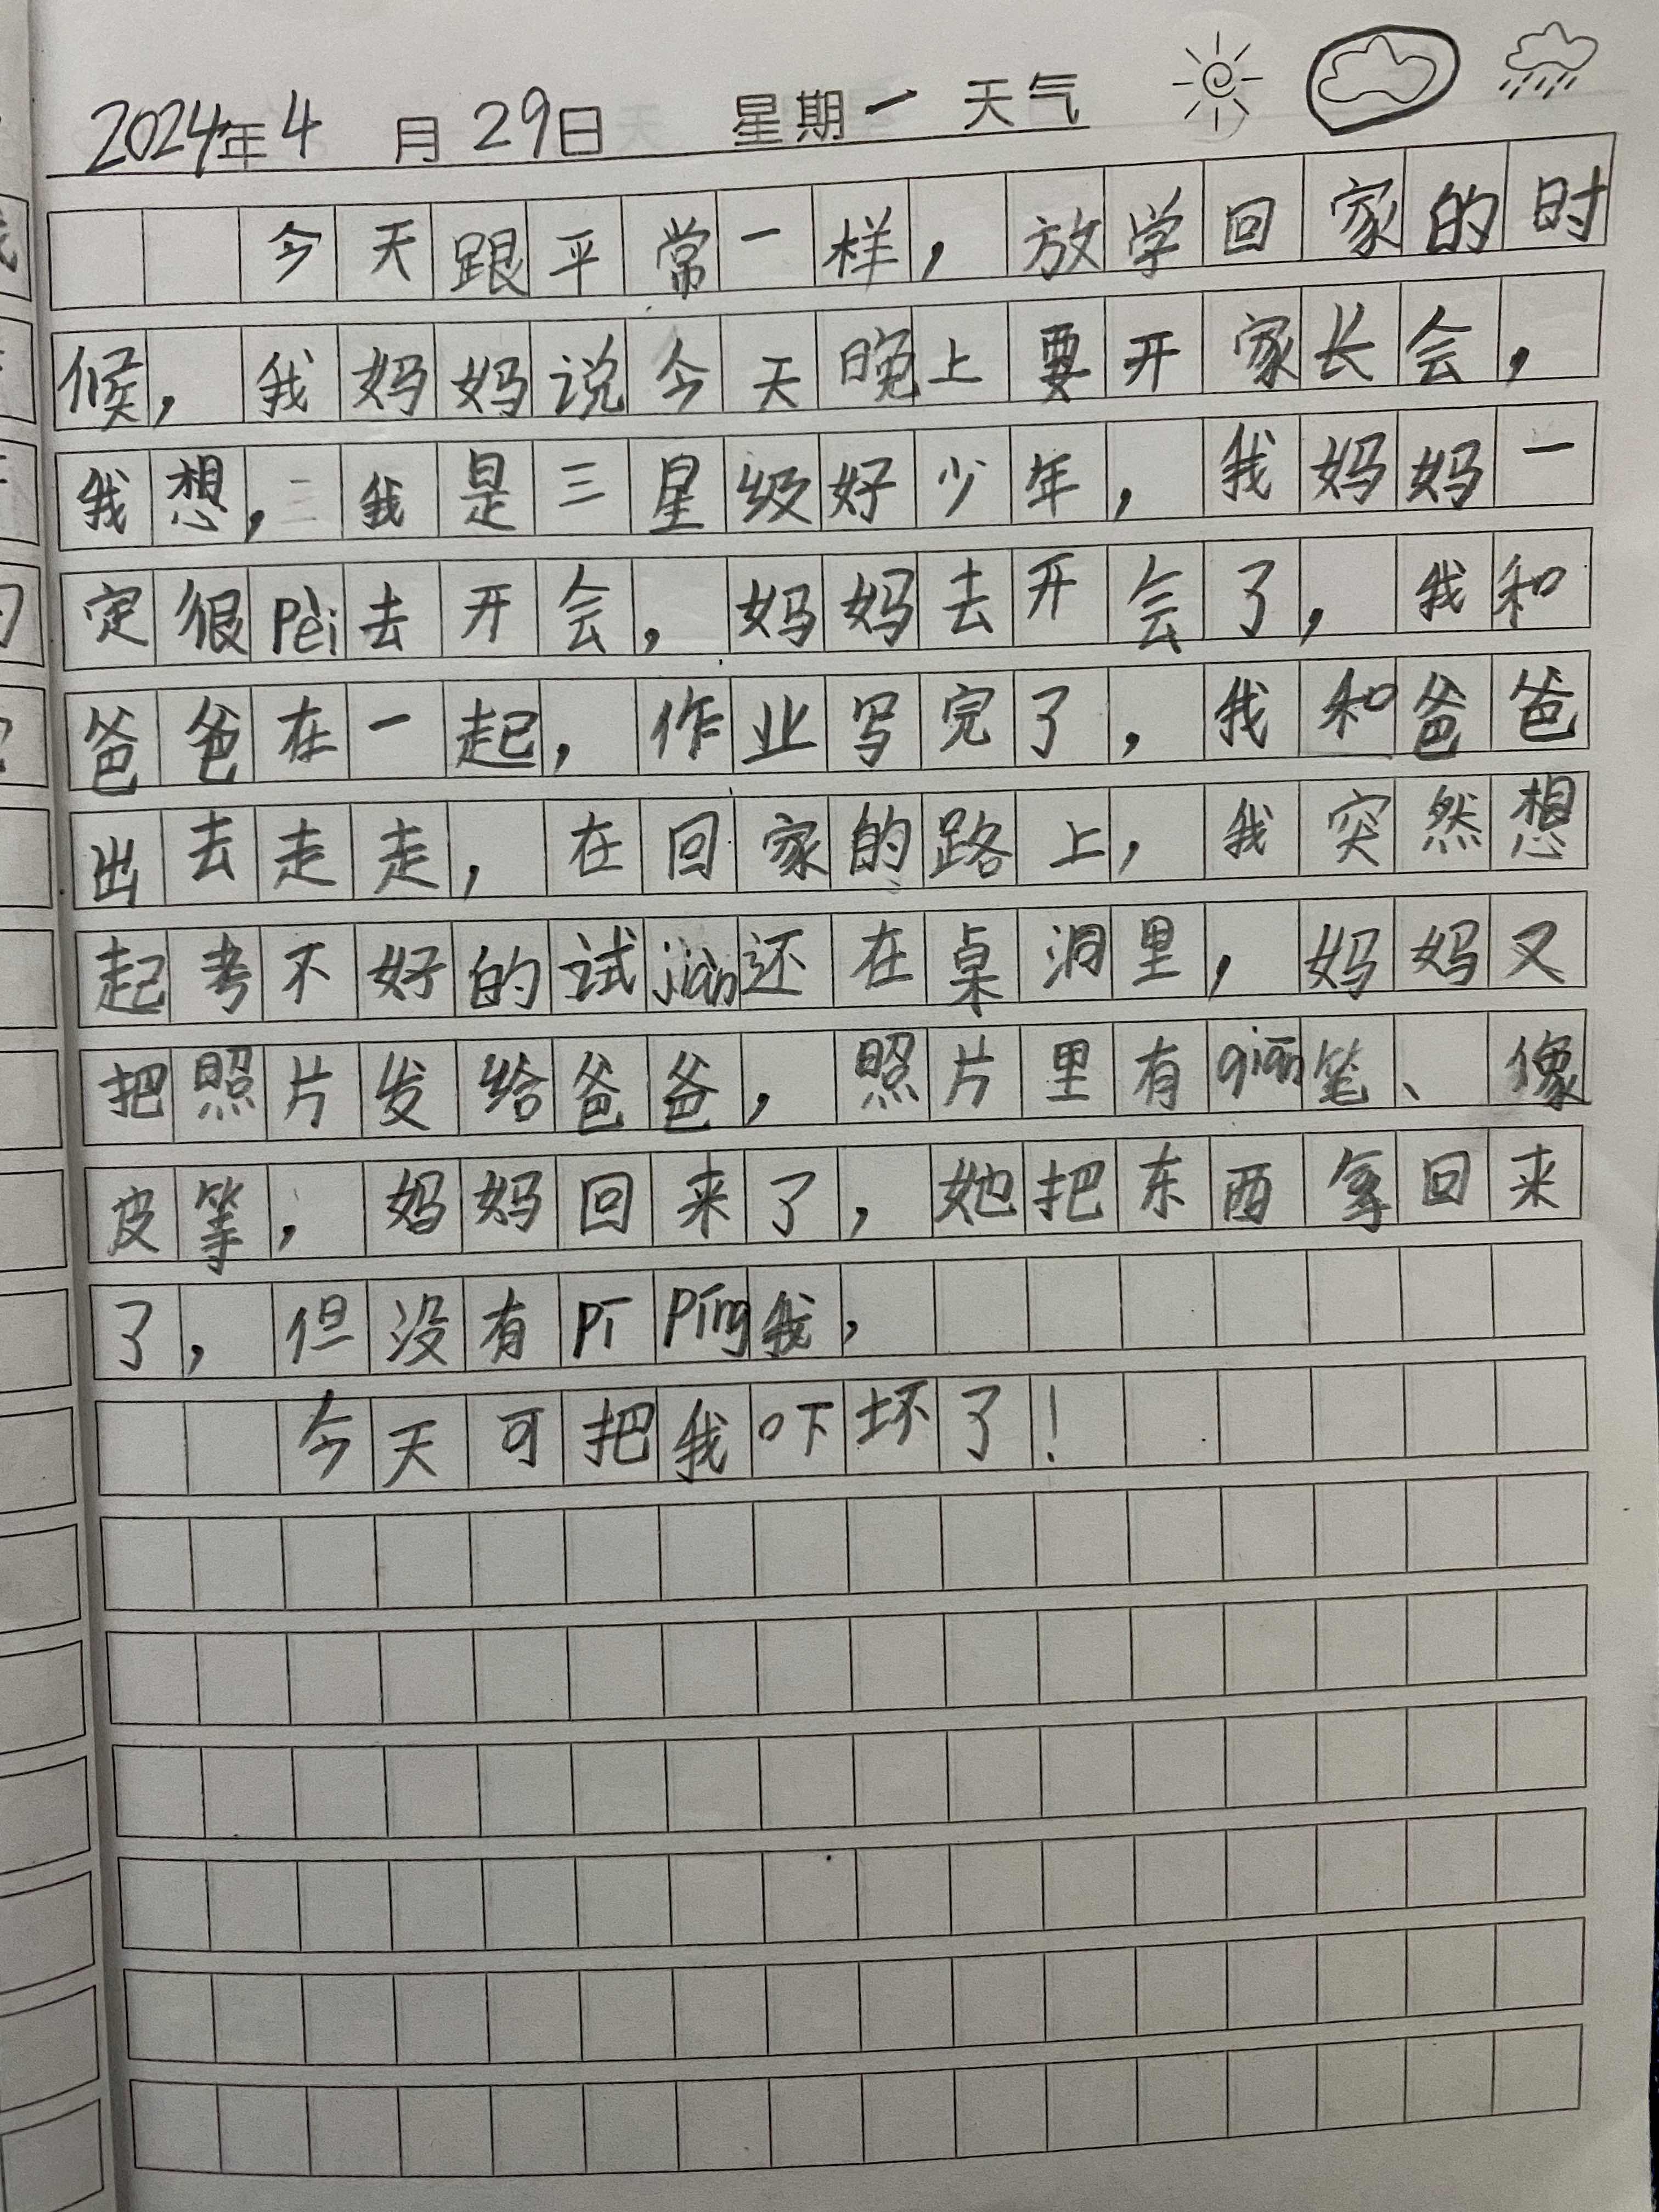 2024年4月29日 星期一 天气
今天跟平常一样，放学回家的时
候，我妈妈说今天晚上要开家长会，
我想，我是三星级好少年，我妈妈一
定很pèi去开会，妈妈去开会了，我和
爸爸在一起，作业写完了，我和爸爸
出去走走，在回家的路上，我突然想
起考不好的试jiàn还在桌洞里，妈妈又
把照片发给爸爸，照片里有qiān笔、像
皮等，妈妈回来了，她把东西拿回来
了，但没有pī píng我，
今天可把我吓坏了！